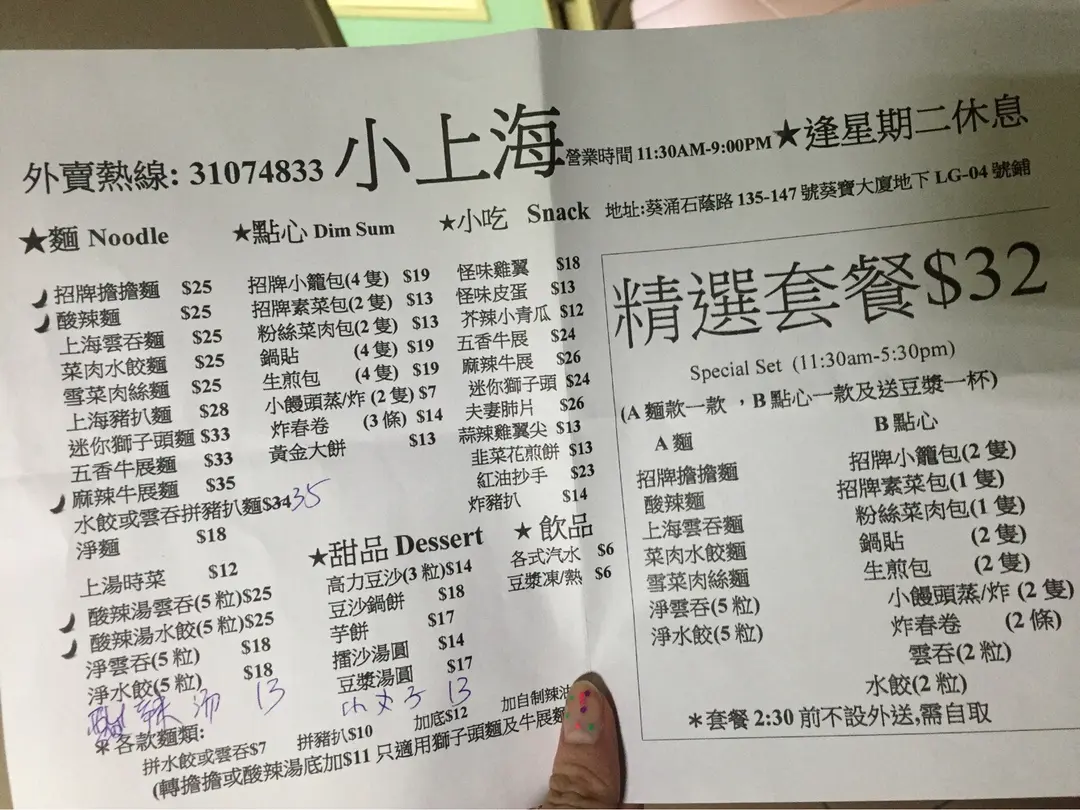 外賣熱線: 31074833 小上海 營業時間 11:30AM-9:00PM ★逢星期二休息
地址:葵涌石蔭路 135-147 號葵寶大廈地下 LG-04 號鋪
★麵 Noodle
招牌擔擔麵 $25
酸辣麵 $25
上海雲吞麵 $25
菜肉水餃麵 $25
雪菜肉絲麵 $25
上海豬扒麵 $28
迷你獅子頭麵 $33
五香牛展麵 $33
麻辣牛展麵 $35
水餃或雲吞拼豬扒麵$34 35
淨麵 $18
上湯時菜 $12
酸辣湯雲吞(5 粒)$25
酸辣湯水餃(5 粒)$25
淨雲吞(5 粒) $18
淨水餃(5 粒) $18
酸辣汤 13
★點心 Dim Sum
招牌小籠包(4 隻) $19
招牌素菜包(2 隻) $13
粉絲菜肉包(2 隻) $13
鍋貼 (4 隻) $19
生煎包 (4 隻) $19
小饅頭蒸/炸 (2 隻) $7
炸春卷 (3 條) $14
黃金大餅 $13
★小吃 Snack
怪味雞翼 $18
怪味皮蛋 $13
芥辣小青瓜 $12
五香牛展 $24
麻辣牛展 $26
迷你獅子頭 $24
夫妻肺片 $26
蒜辣雞翼尖 $13
韭菜花煎餅 $13
紅油抄手 $23
炸豬扒 $14
★甜品 Dessert
高力豆沙(3 粒)$14
豆沙鍋餅 $18
芋餅 $17
擂沙湯圓 $14
豆漿湯圓 $17
小丸子 13
★ 飲品
各式汽水 $6
豆漿凍/熱 $6
＊各款麵類:
拼水餃或雲吞$7 拼豬扒$10 加底$12 加自制辣油
(轉擔擔或酸辣湯底加$11 只適用獅子頭麵及牛展麵
精選套餐$32
Special Set (11:30am-5:30pm)
(A 麵款一款 ，B 點心一款及送豆漿一杯)
A 麵
招牌擔擔麵
酸辣麵
上海雲吞麵
菜肉水餃麵
雪菜肉絲麵
淨雲吞(5 粒)
淨水餃(5 粒)
B 點心
招牌小籠包(2 隻)
招牌素菜包(1 隻)
粉絲菜肉包(1 隻)
鍋貼 (2 隻)
生煎包 (2 隻)
小饅頭蒸/炸 (2 隻)
炸春卷 (2 條)
雲吞(2 粒)
水餃(2 粒)
＊套餐 2:30 前不設外送,需自取